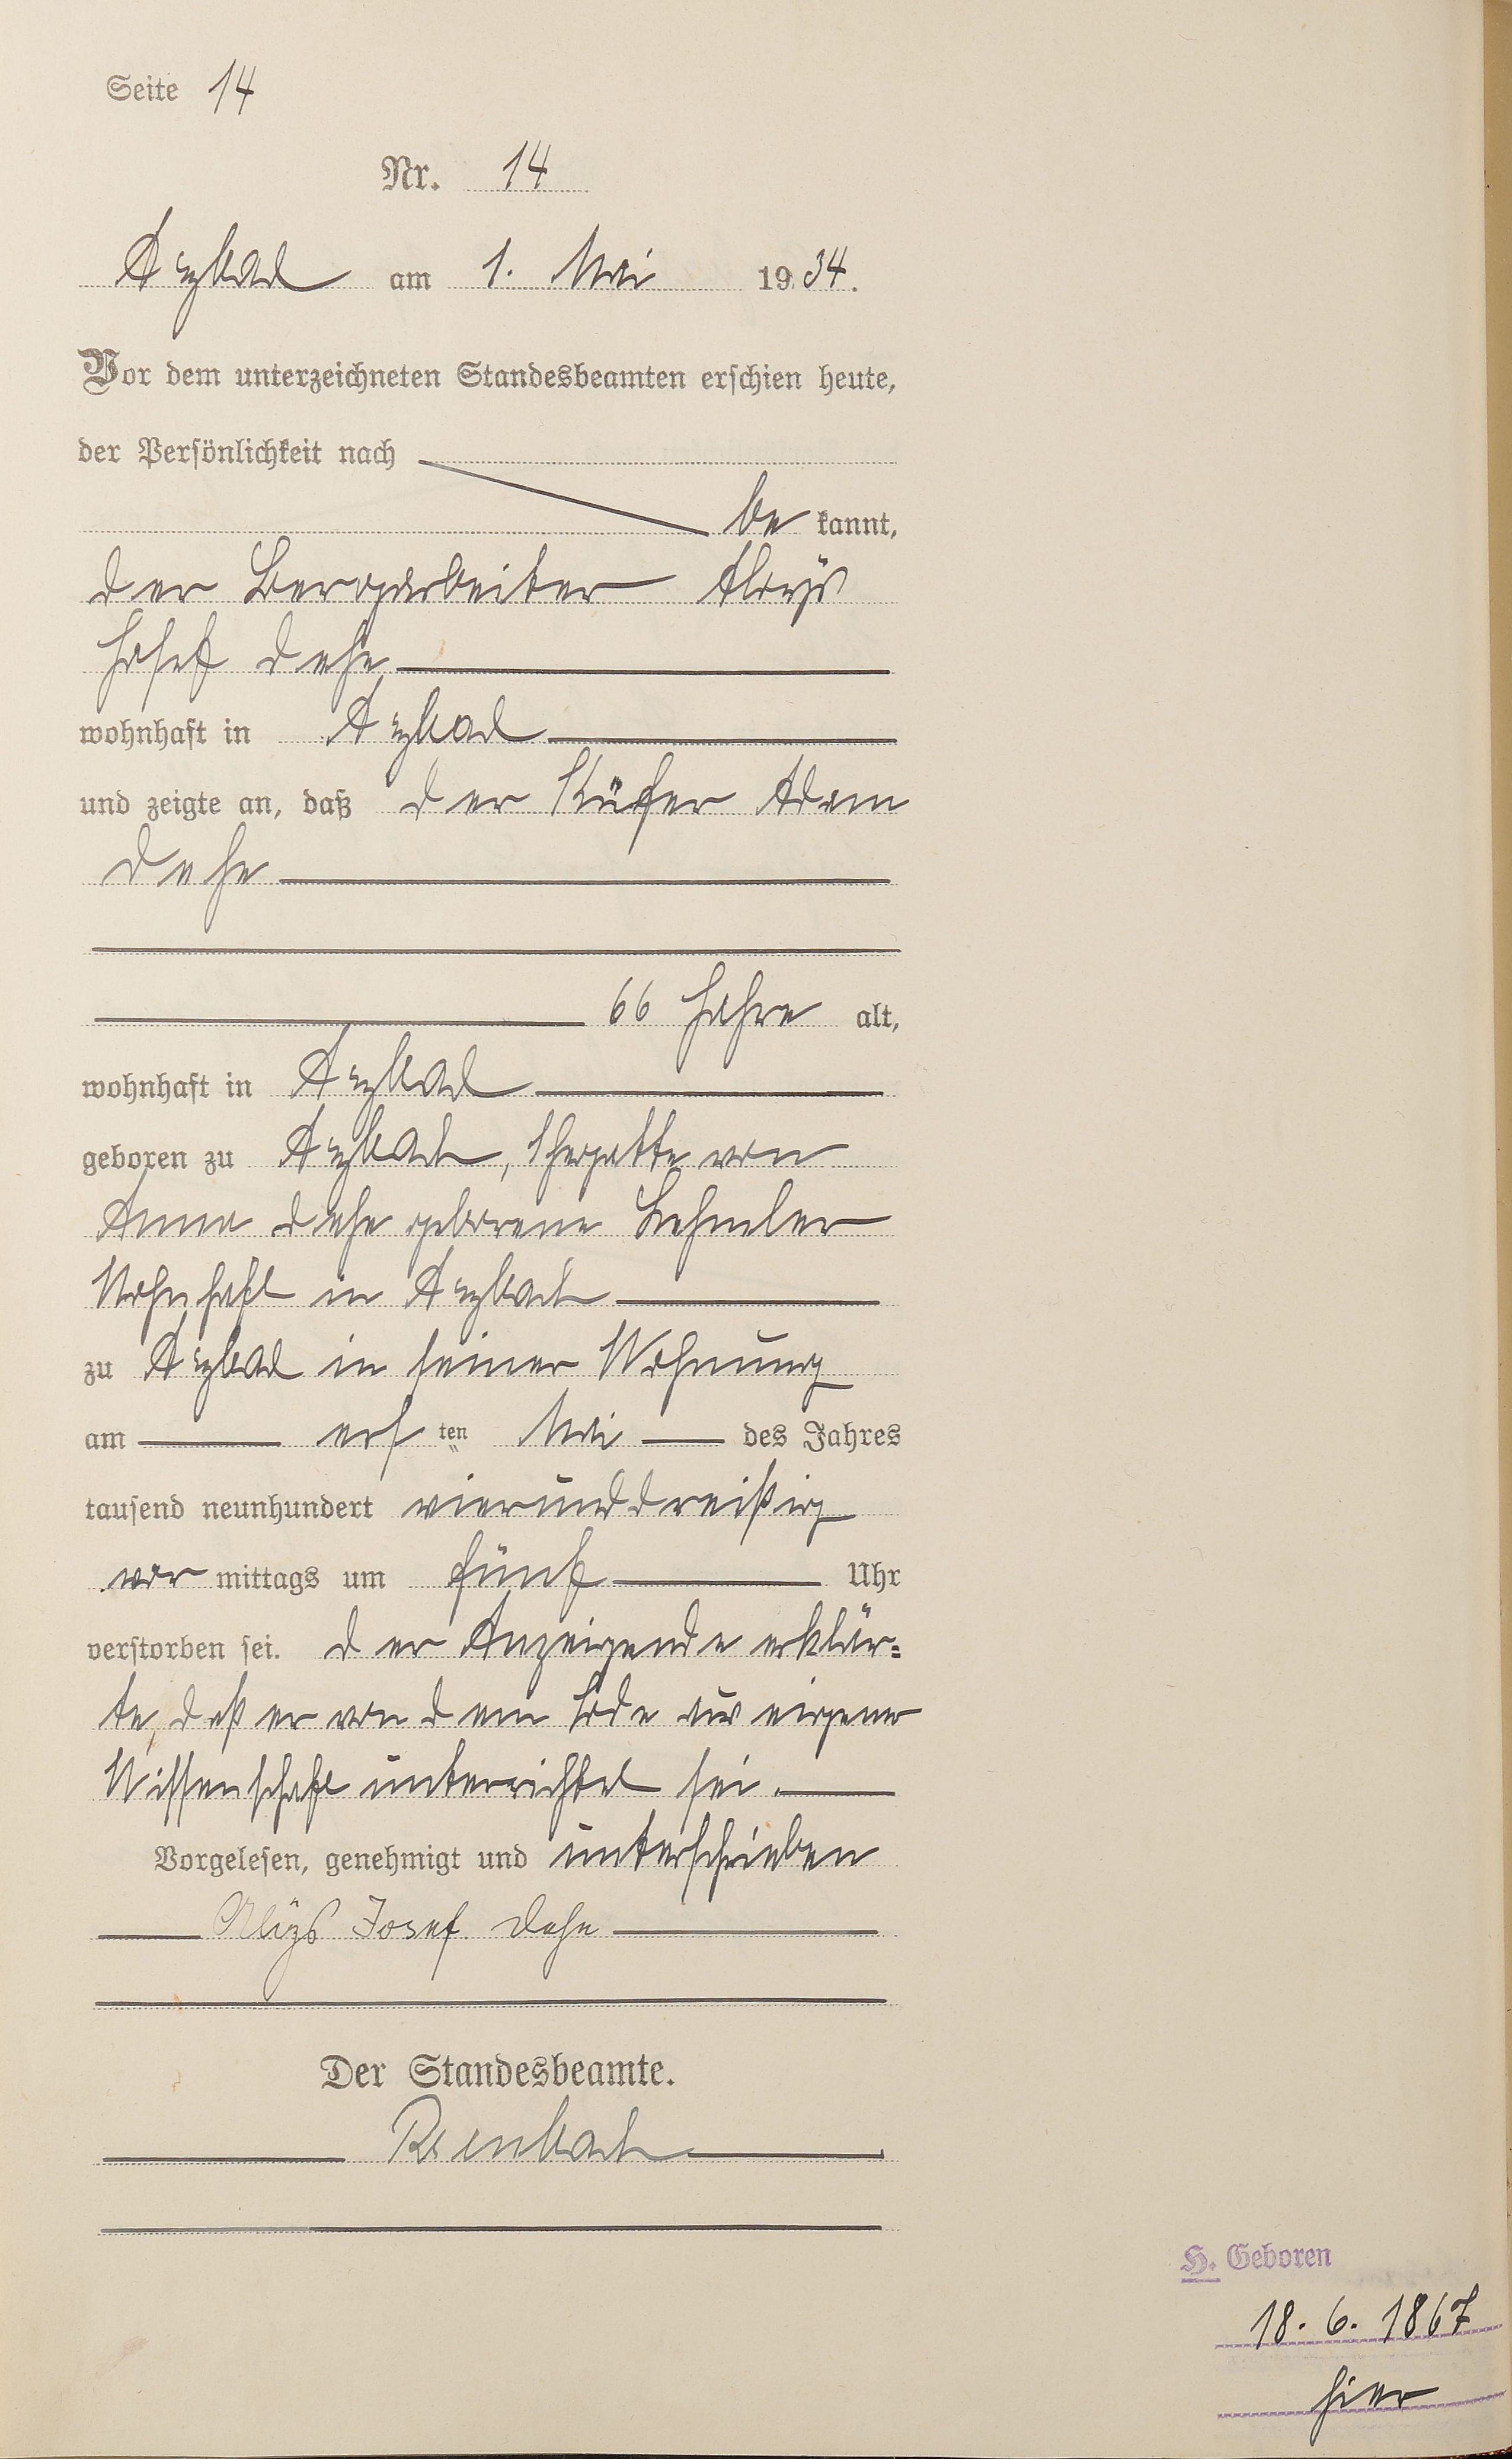 Seite 14
Nr. 14
Arzbach am 1. Mai 1934.
Vor dem unterzeichneten Standesbeamten erschien heute,
der Persönlichkeit nach
be kannt,
der Bergarbeiter Aloys
Josef Dehe
wohnhaft in Arzbach
und zeigte an, daß der Küfer Adam
Dehe
66 Jahre alt,
wohnhaft in Arzbach
geboren zu Arzbach, Ehegatte von
Anna Dehe geborene Lehmler
Wohnhaft in Arzbach
zu Arzbach in seiner Wohnung
am ersten Mai des Jahres
tausend neunhundert vierunddreißig
vor mittags um fünf Uhr
verstorben sei. Der Anzeigende erklär=
te, daß er von dem Tode aus eigener
Wissenschaft unterrichtet sei.
Vorgelesen, genehmigt und unterschrieben
Aloys Josef Dehe
Der Standesbeamte.
H. Geboren
18. 6. 1867
hier